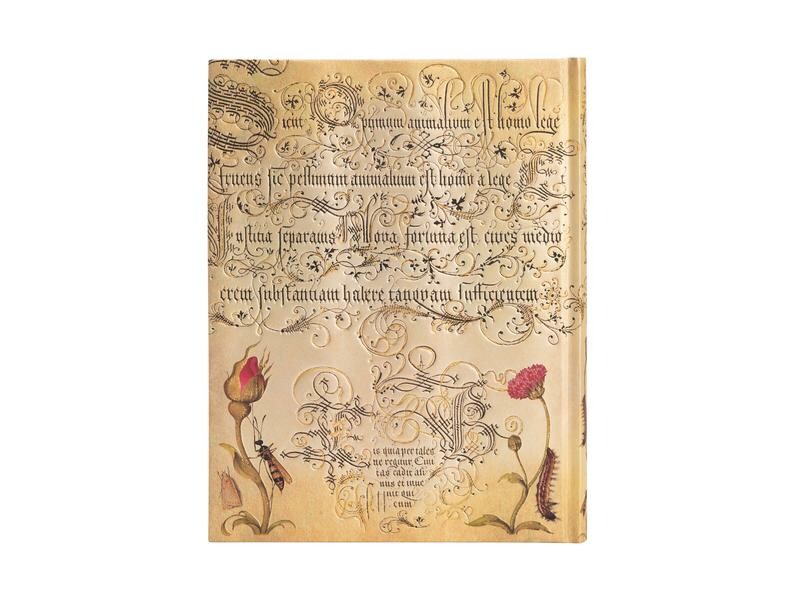 Sicut Optimum animalium est homo lege
fruens sic pessimum animalium est homo a lege
Iustitia separatus Nova fortuna est cives medio
crem substantiam habere tanquam sufficientem
is quia per tales
ne regitur Civi
tas cadit ali
nus et inve
nit qui
cum